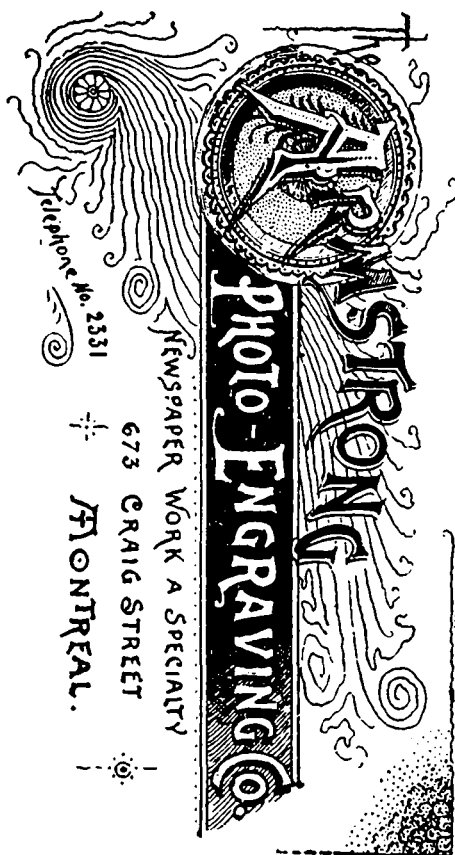 The
ARMSTRONG
PHOTO-ENGRAVING CO.
NEWSPAPER WORK A SPECIALTY
673 CRAIG STREET
MONTREAL.
Telephone No. 2331